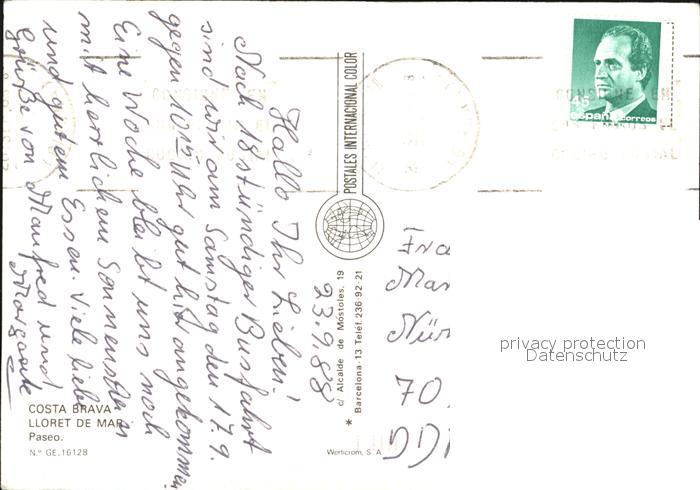 Hallo Ihr Lieben!
23.9.88
Nach 18 stündiger Busfahrt
sind wir am Samstag den 17.9.
gegen 10 Uhr gut hier angekommen
Eine Woche bleibt uns noch
mit herrlichem Sonnenschein
und gutem Essen. Viele liebe
Grüße von Manfred und
Margarete
COSTA BRAVA
LLORET DE MAR
Paseo.
N.º GE.16128
POSTALES INTERNACIONAL COLOR
c/ Alcalde de Móstoles, 19
* Barcelona-13 Teléf. 236-92-21
Werticrom, S. A.
45
españa correos
Fra
Mar
Nür
70
DD
privacy protection
Datenschutz